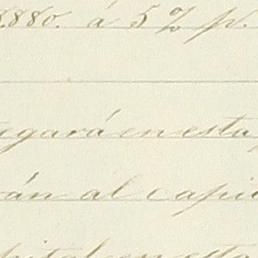 1880. á 5% p.
egará en esta
rán al capi
pital en esta